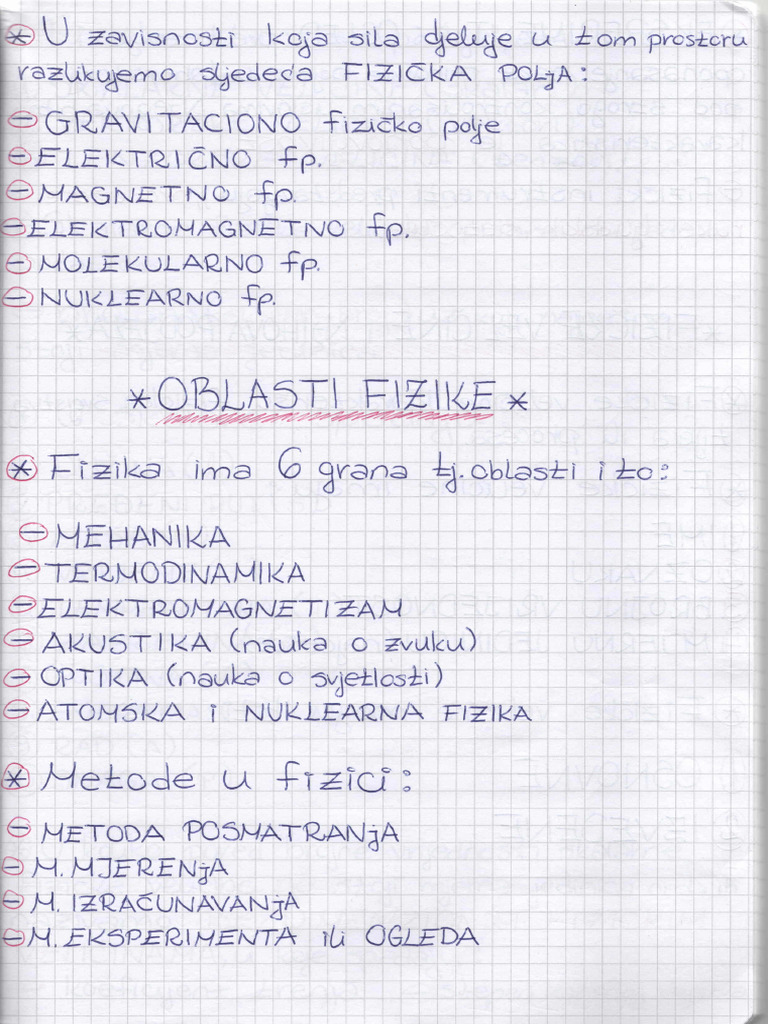 * U zavisnosti koja sila djeluje u tom prostoru
razlikujemo sljedeća FIZIČKA POLjA:
- GRAVITACIONO fizičko polje
- ELEKTRIČNO fp.
- MAGNETNO fp.
- ELEKTROMAGNETNO fp.
- MOLEKULARNO fp.
- NUKLEARNO fp.
* OBLASTI FIZIKE *
* Fizika ima 6 grana tj. oblasti i to:
- MEHANIKA
- TERMODINAMIKA
- ELEKTROMAGNETIZAM
- AKUSTIKA (nauka o zvuku)
- OPTIKA (nauka o svjetlosti)
- ATOMSKA i NUKLEARNA FIZIKA
* Metode u fizici:
- METODA POSMATRANjA
- M. MJERENjA
- M. IZRAČUNAVANjA
- M. EKSPERIMENTA ili OGLEDA